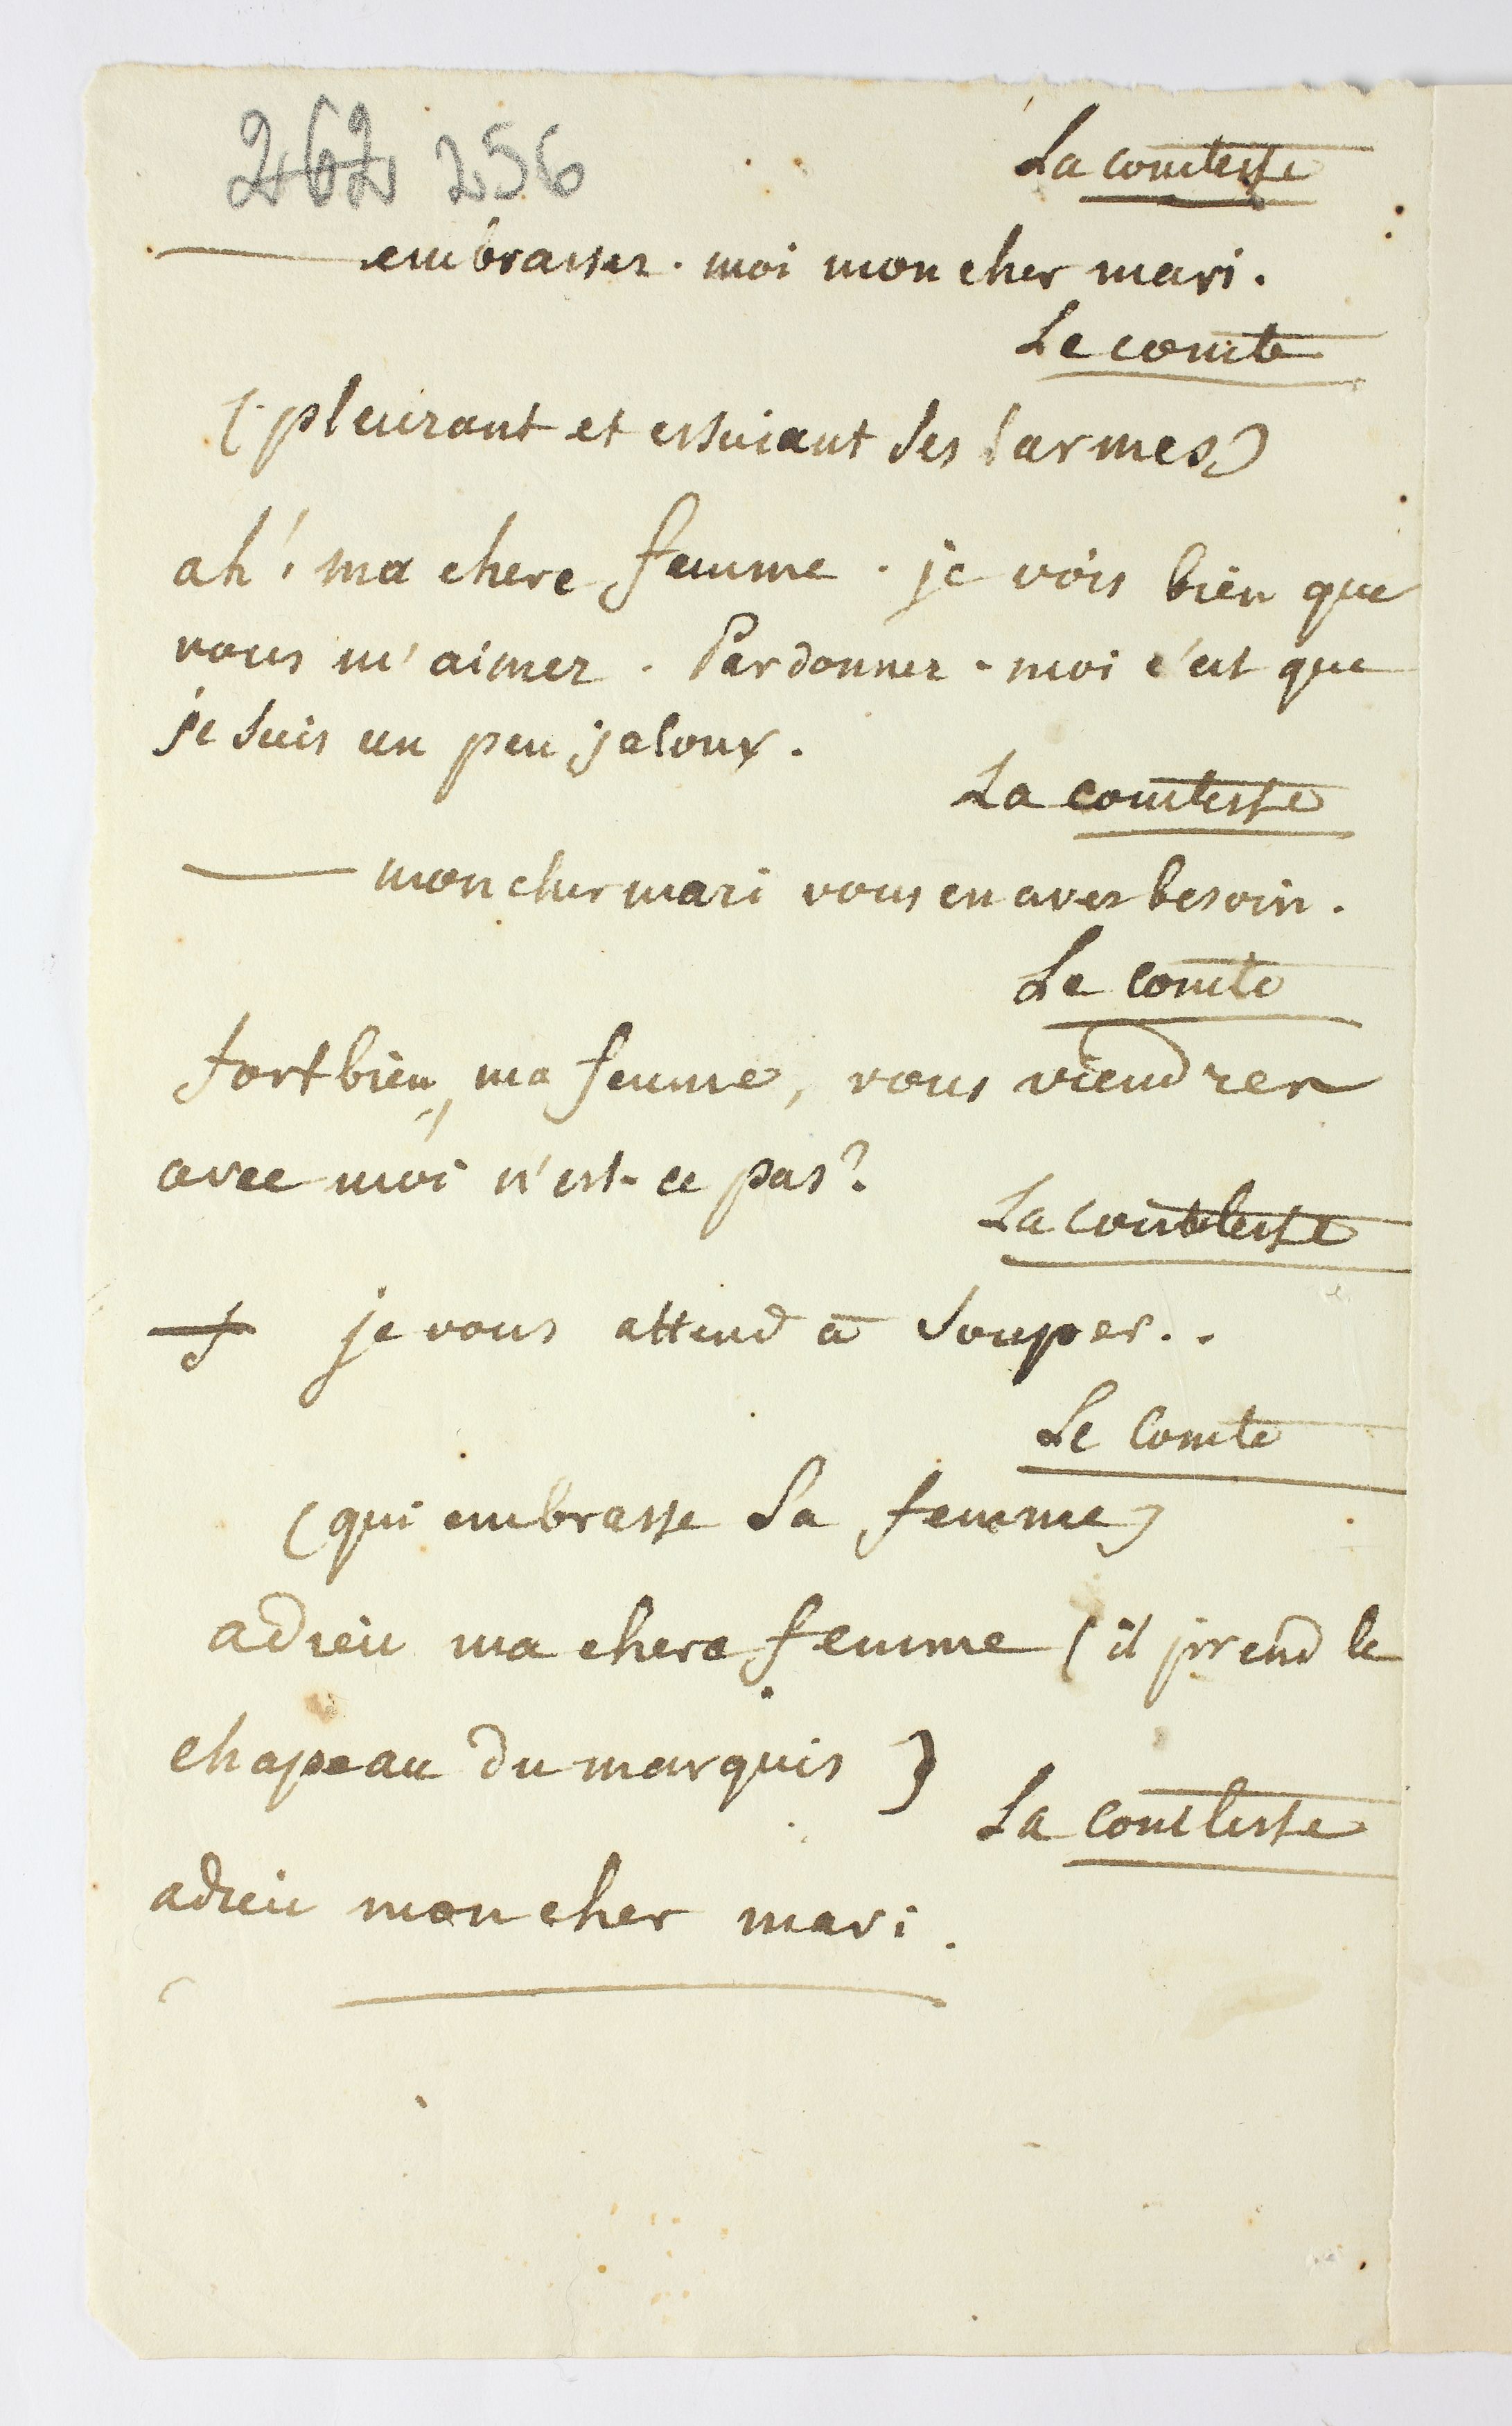 262 256
La comtesse
embrasser-moi mon cher mari.
Le comte
(pleurant et essuiant ses larmes)
ah! ma chere femme. je vois bien que
vous m'aimez. Pardonnez-moi c'est que
je suis un peu jaloux.
La comtesse
mon cher mari vous en avez besoin.
Le comte
fort bien, ma femme, vous viendrez
avec moi n'est-ce pas?
La comtesse
je vous attend a souper..
Le Comte
(qui embrasse sa femme)
adieu ma chere femme (il prend le
chapeau du marquis)
La comtesse
adieu mon cher mari.